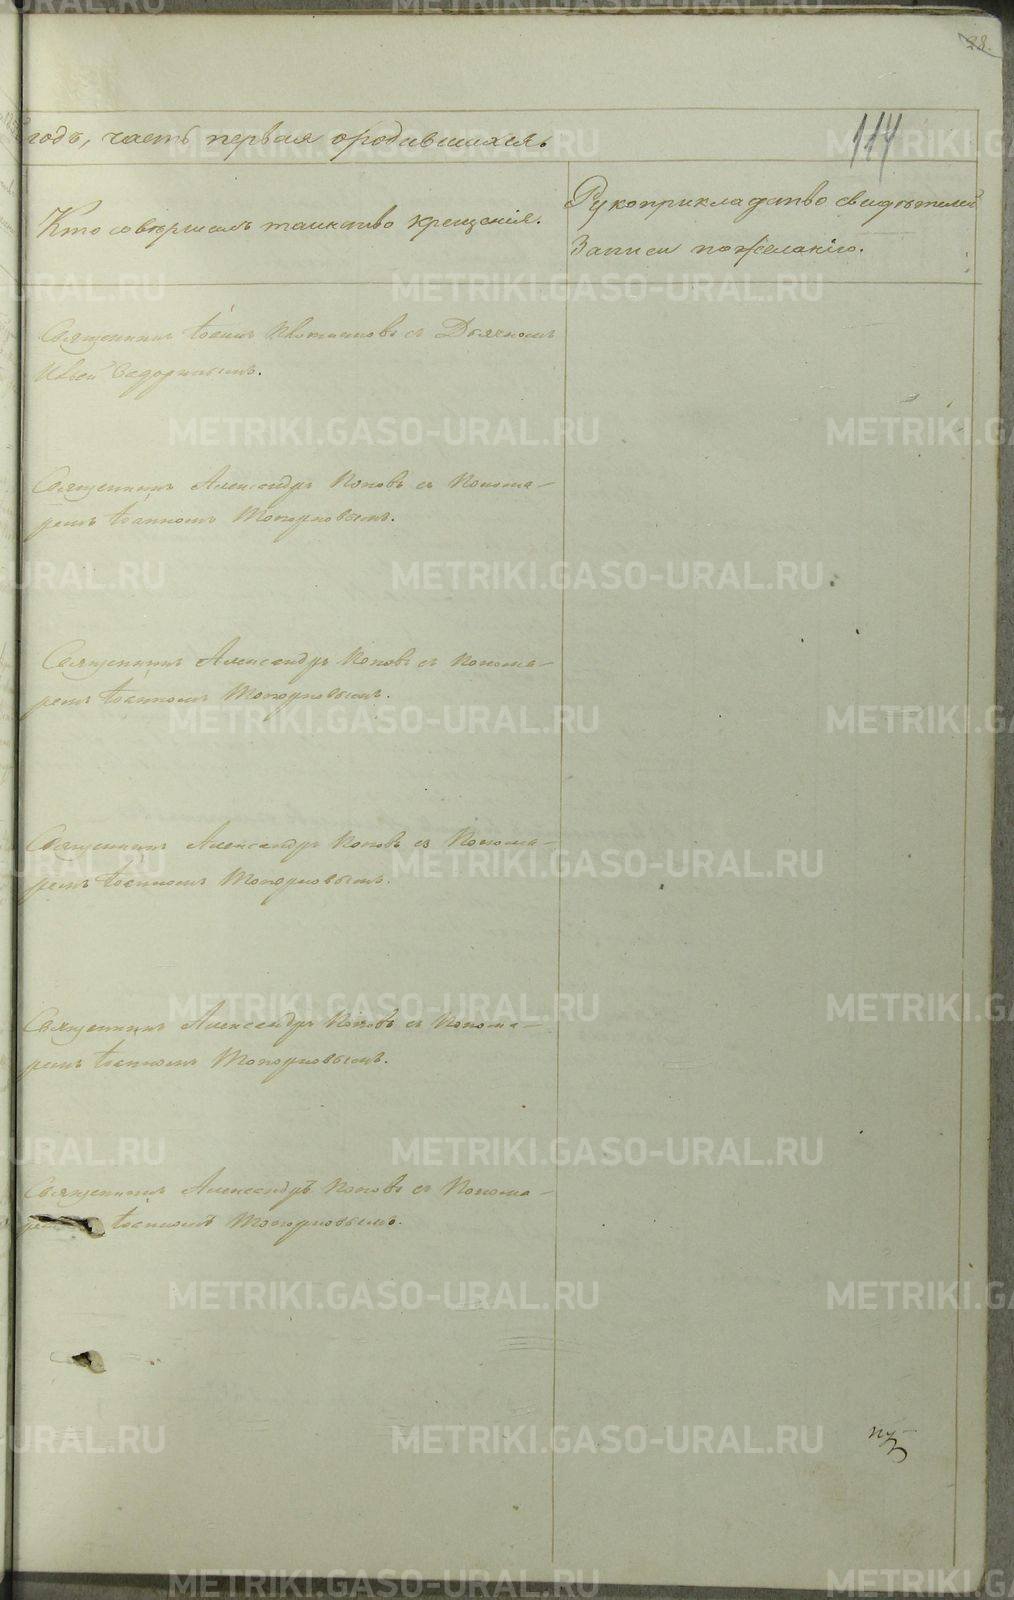 28.
114
годъ, часть первая ородившихся.
Кто совершалъ таинство крещенія.
Рукоприкладство свидѣтелей
Записи пожеланію.
Священникъ Іоаннъ съ Дьячкомъ
Священникъ Александръ Поповъ съ Понома-
ремъ Іоанномъ Топорковымъ.
Священникъ Александръ Поповъ съ Понома-
ремъ Іоанномъ Топорковымъ.
Священникъ Александръ Поповъ съ Понома-
ремъ Іоанномъ Топорковымъ.
Священникъ Александръ Поповъ съ Понома-
ремъ Іоанномъ Топорковымъ.
Священникъ Александръ Поповъ съ Понома-
Іоанномъ Топорковымъ.
METRIKI.GASO-URAL.RU